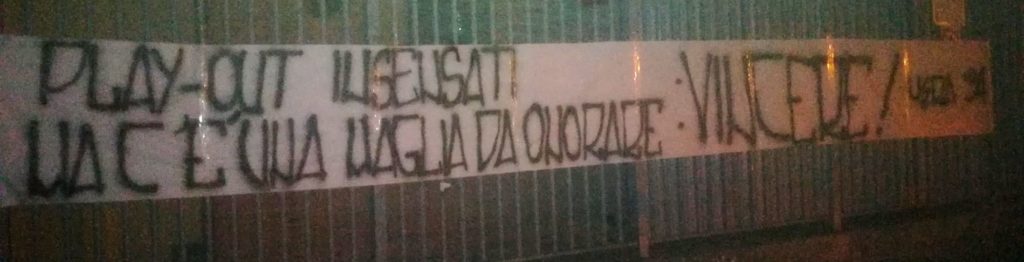 PLAY-OUT INSENSATI
MA C'È UNA MAGLIA DA ONORARE :VINCERE!